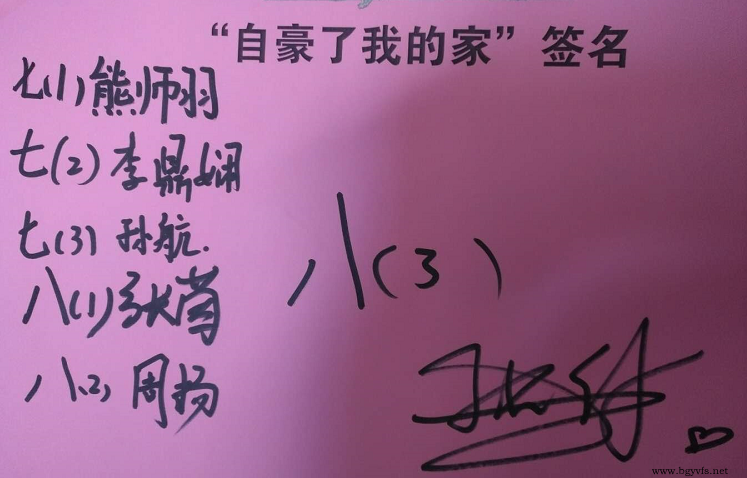 “自豪了我的家”签名
七(1)熊师羽
七(2)李鼎娴
七(3)孙航.
八(1)张茑
八(2)周扬
八(3)
www.bgyvfs.net